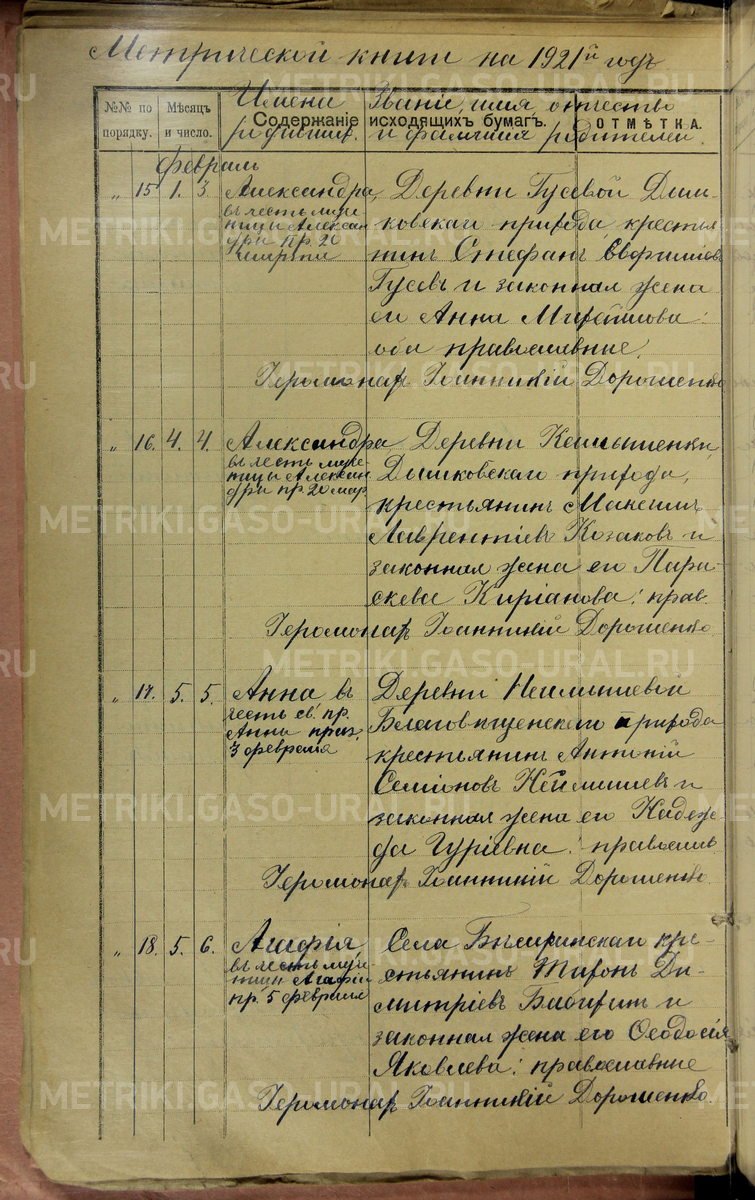 Метрической книги на 1921й годъ
№№ по порядку.
Мѣсяцъ и число.
Содержаніе исходящихъ бумагъ.
ОТМѢТКА.
Имена родивших.
Званіе, имя отчество и фамилия родителей
Февраль
„ 15 1. 3. Александра,
въ честь муче
ницы Алексан
дры пр. 20
марта
Деревни Гусевой Дыш-
ковскаго прихода, крестья
нинъ Стефанъ Евфимiевъ
Гусевъ и законная жена
его Анна
оба православные.
Іеромонахъ Іоанникій Дорошенко
„ 16. 4. 4. Александра,
въ честь муче
ницы Алексан
дры пр. 20 мар
Деревни
Дышковскаго прихода,
крестьянинъ Максимъ
Лаврентіевъ Козаковъ и
законная жена его Пара-
скева Киріанова: прав.
Іеромонахъ Іоанникій Дорошенко
„ 17. 5. 5. Анна въ
честь св. пр.
Анны праз.
3 февраля
Деревни
Благовѣщенскаго прихода
крестьянинъ Антоній
Семіоновъ и
законная жена его Надеж-
да Гуріевна: православ
Іеромонахъ Іоанникій Дорошенко.
„ 18. 5. 6. Агафія,
въ честь муче-
ницы Агафіи
пр. 5 февраля
Села кре-
стьянинъ Ди-
митріевъ и
законная жена его Ѳеодосія
Яковлева: православные
Іеромонахъ Іоанникій Дорошенко.
METRIKI.GASO-URAL.RU